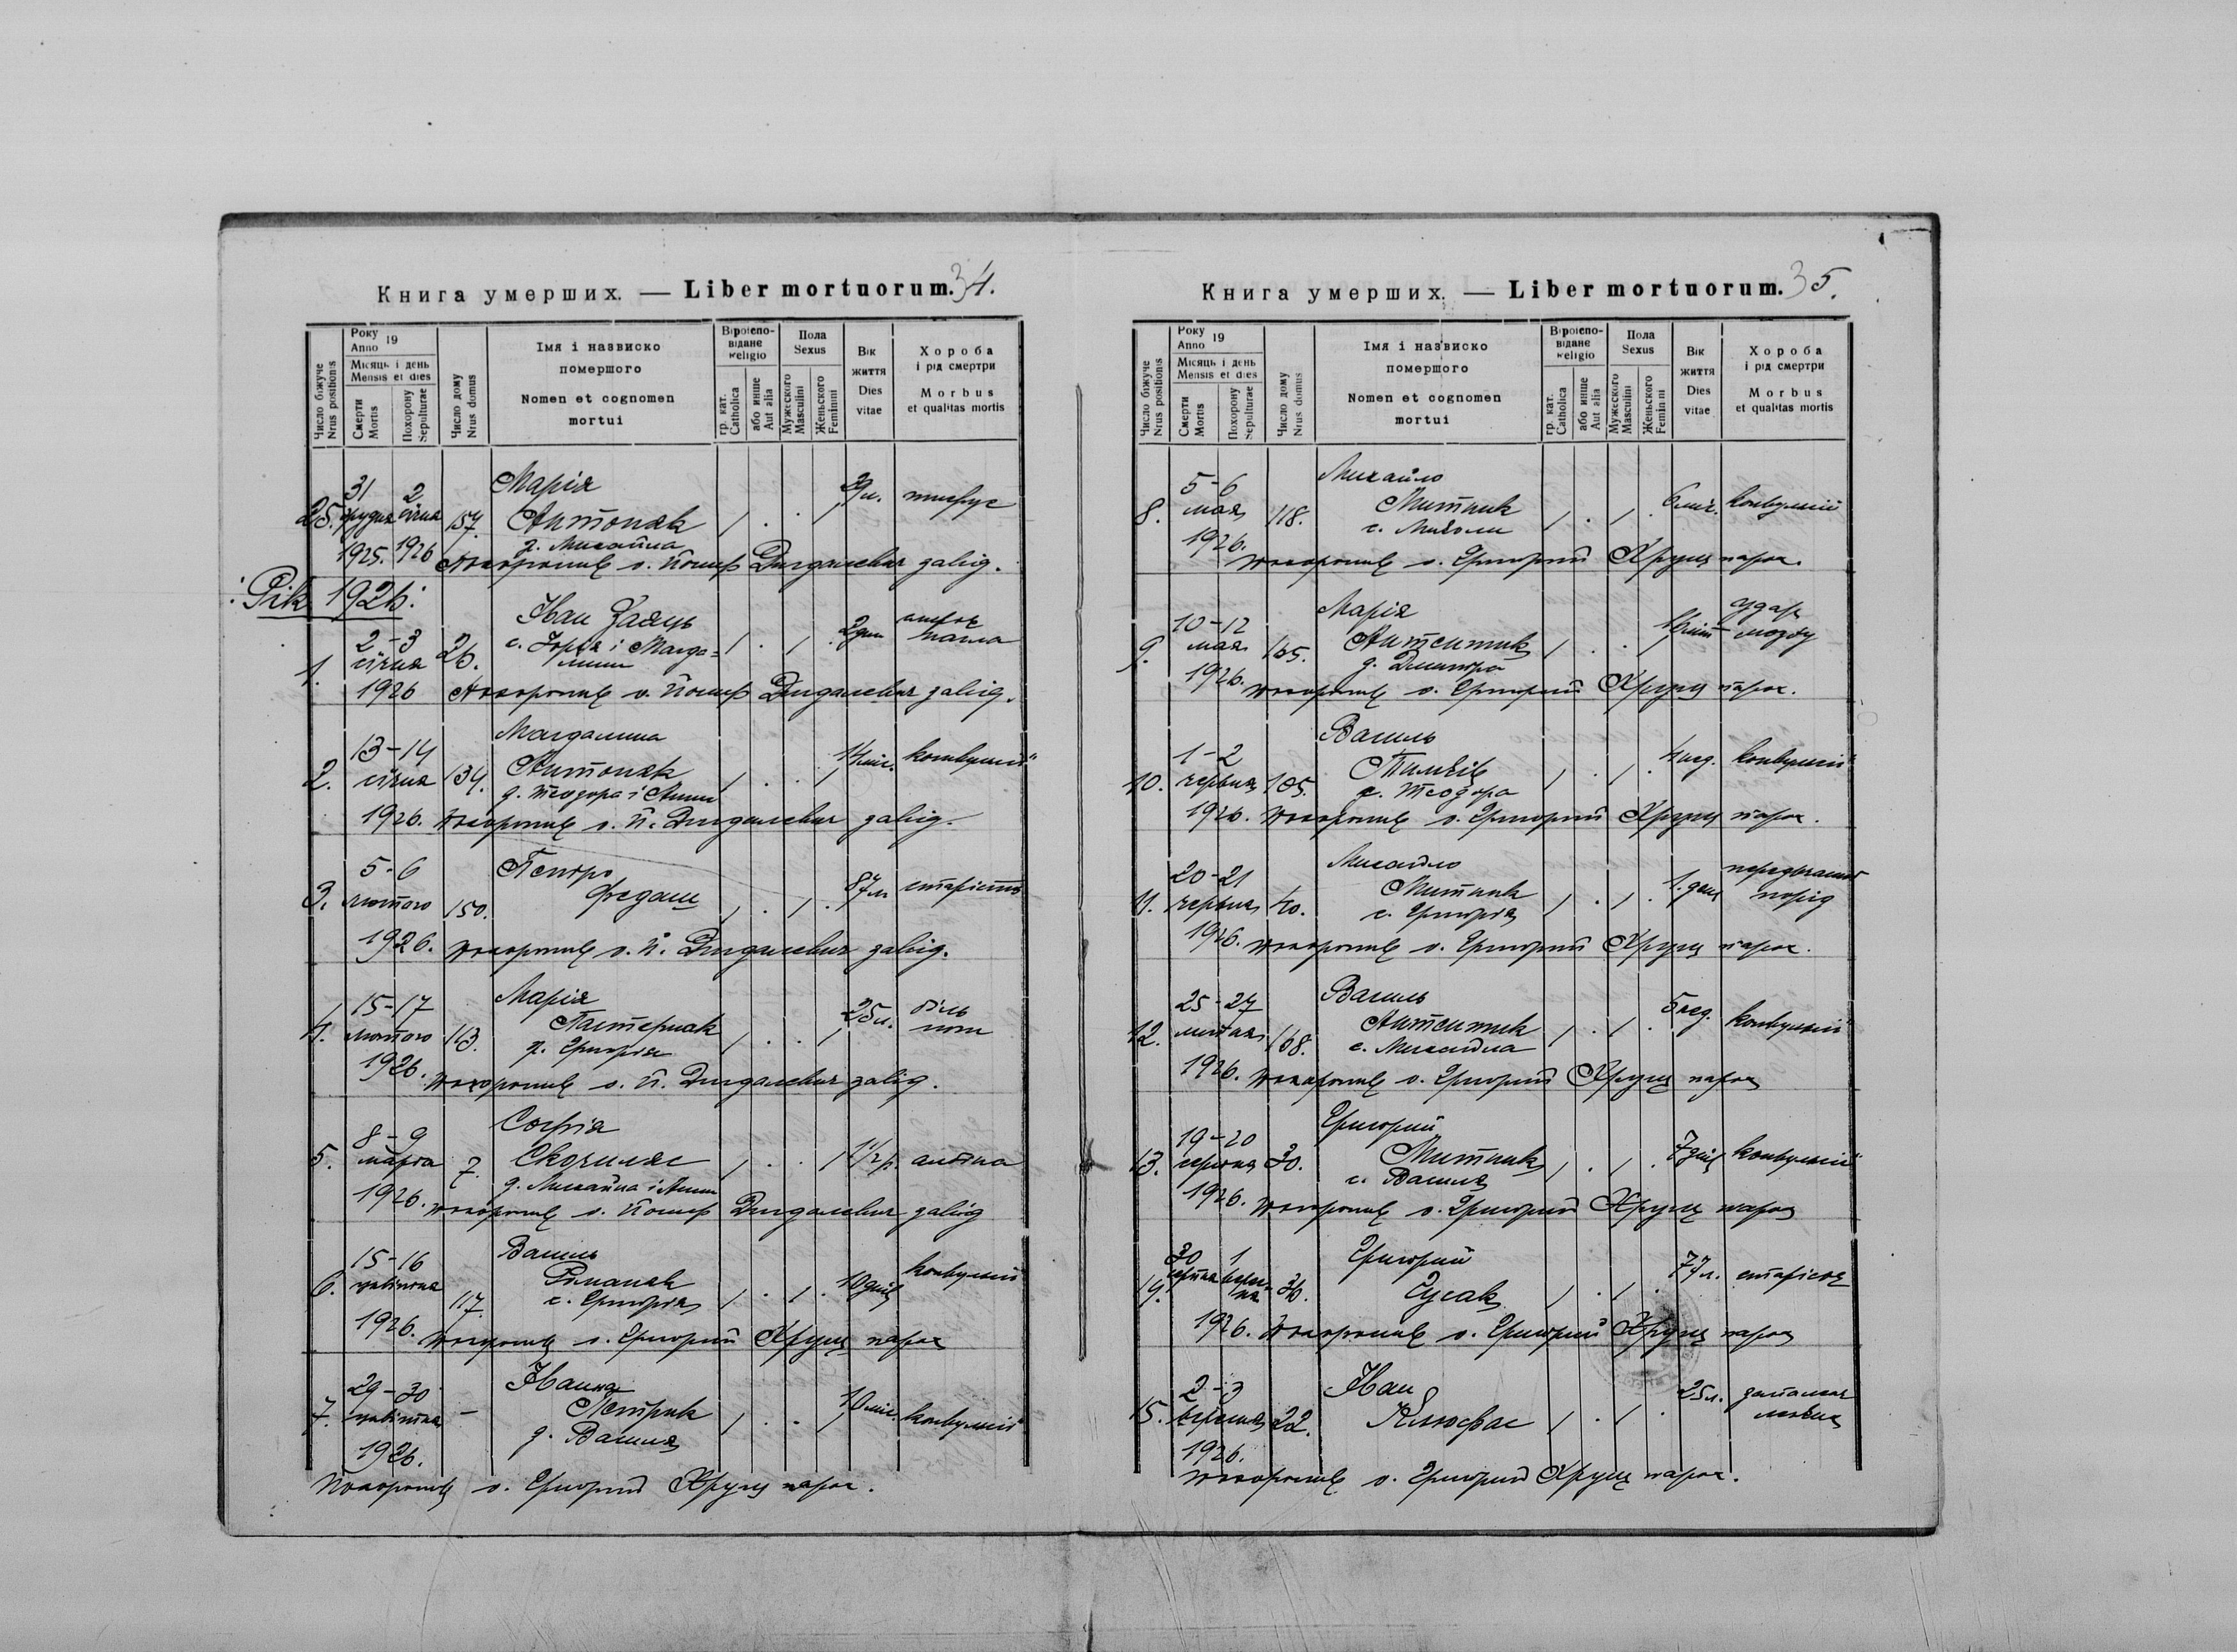 Книга умерших. — Liber mortuorum. 34.
Число біжуче
Nrus positionis
Року
Anno 19
Місяць і день
Mensis et dies
Смерти
Mortis
Похорону
Sepulturae
Число дому
Nrus domus
Імя і назвиско
помершого
Nomen et cognomen
mortui
Віроіспо-
відане
Religio
гр. кат.
Catholica
або инше
Aut alia
Пола
Sexus
Мужеского
Masculini
Женьского
Feminini
Вік
життя
Dies
vitae
Хороба
і рід смертри
Morbus
et qualitas mortis
31 2 Марія
25. грудня січня 157. Антоняк тифус
1925. 1926 д. Михайла
Похоронив о. Йосиф завід.
Рік 1926:
Іван Заяць
2-3 с. Юрія і Магда=
1. січня 26. лини 2 дни
1926 Похоронив о. Йосиф завід.
13-14 Магдалина
2. січня 134. Антоняк 14 міс. конвульсії
д. Теодора і Анни
1926. Похоронив о. Й. завід.
5-6 Петро
3. лютого 150. Федаш 87 л. старість
1926. Похоронив о. Й. завід.
15-17 Марія
4. лютого 113. Пастернак 25 л. біль
д. Григорія
1926. Похоронив о. Й. завід.
8-9 Софія
5. марта 7. Скочиляс 1 1/2 р.
д. Михайла і Анни
1926. Похоронив о. Йосиф завід
15-16 Василь
6. цвітня 117. Романяк 10 днів конвульсії
с. Григорія
1926. Похоронив о. Григорий Хрущ парох
29-30 Іванна
7. цвітня - Петрик 10 міс. конвульсії
д. Василя
1926.
Похоронив о. Григорий Хрущ парох.
Книга умерших. — Liber mortuorum. 35.
Число біжуче
Nrus positionis
Року
Anno 19
Місяць і день
Mensis et dies
Смерти
Mortis
Похорону
Sepulturae
Число дому
Nrus domus
Імя і назвиско
помершого
Nomen et cognomen
mortui
Віроіспо-
відане
Religio
гр. кат.
Catholica
або инше
Aut alia
Пола
Sexus
Мужеского
Masculini
Женьского
Feminini
Вік
життя
Dies
vitae
Хороба
і рід смертри
Morbus
et qualitas mortis
5-6 Михайло
8. мая 118. Митник 6 міс. конвульсії
с. Миколи
1926.
Похоронив о. Григорий Хрущ парох.
10-12 Марія удар
9. мая 165. мозку
д. Дмитра
1926. Похоронив о. Григорий Хрущ парох.
1-2 Василь
10. червня 105. 4 нед. конвульсії
с. Теодора
1926. Похоронив о. Григорий Хрущ парох.
20-21 Михайло
11. червня 40. Митник 1. день порід
с. Григорія
1926. Похоронив о. Григорий Хрущ парох.
25-27 Василь
12. липня 168. 5 нед. конвульсії
с. Михайла
1926. Похоронив о. Григорий Хрущ парох
19-20 Григорий
13. серпня 30. Митник 7 днів конвульсії
с. Василя
1926. Похоронив о. Григорий Хрущ парох
30 1 Григорий
серпня верес-
ня Гусак 77 л. старість
1926. Похоронив о. Григорий Хрущ парох
2-3 Іван
15. вересня 22. 25 л.
1926.
Похоронив о. Григорий Хрущ парох.